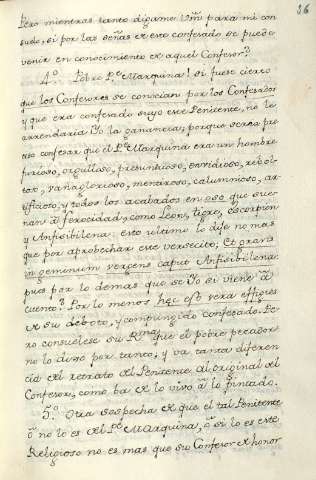 36
Pero mientras tanto digame Vm para mi con
suelo, si por las señas de este confesado se puede
venir en conocimiento de aquel Confesor?
4.º Pobre P.e Marquina! si fuese cierto
que los Confesores se conocian por los Confesados
y que era confesado suyo este Penitente, no le
arrendaria Yo la ganancia, porque seria pre
ciso confesar que el P.e Marquina era un hombre
furioso, orgulloso, presuntuoso, envidioso, rebol
tor, vañaglorioso, mentiroso, calumnioso, ar
tificioso, y todos los acabados en oso que sue
nan á ferocidad, como Leon, tigre, escorpion
y Anfisibilena: esto ultimo lo dije no mas
que por aprobechar este versecito; Et gravis
in geminum vergens caput Anfisibilena:
pues por lo demas que se Yo si viene á
cuento? Por lo menos hæc est vera effigies
de su deboto, y compungido confesado. Pe
ro consuelese su R.ma que el pobre pecador
no lo duso por tanto, y va tanta diferen
cia del retrato del Penitente al original del
Confesor, como ba de lo vivo á lo pintado.
5.º Otra sospecha de que el tal Penitente
ó no lo es del P.e Marquina, ó si lo es este
Religioso no es mas que su Confesor de honor